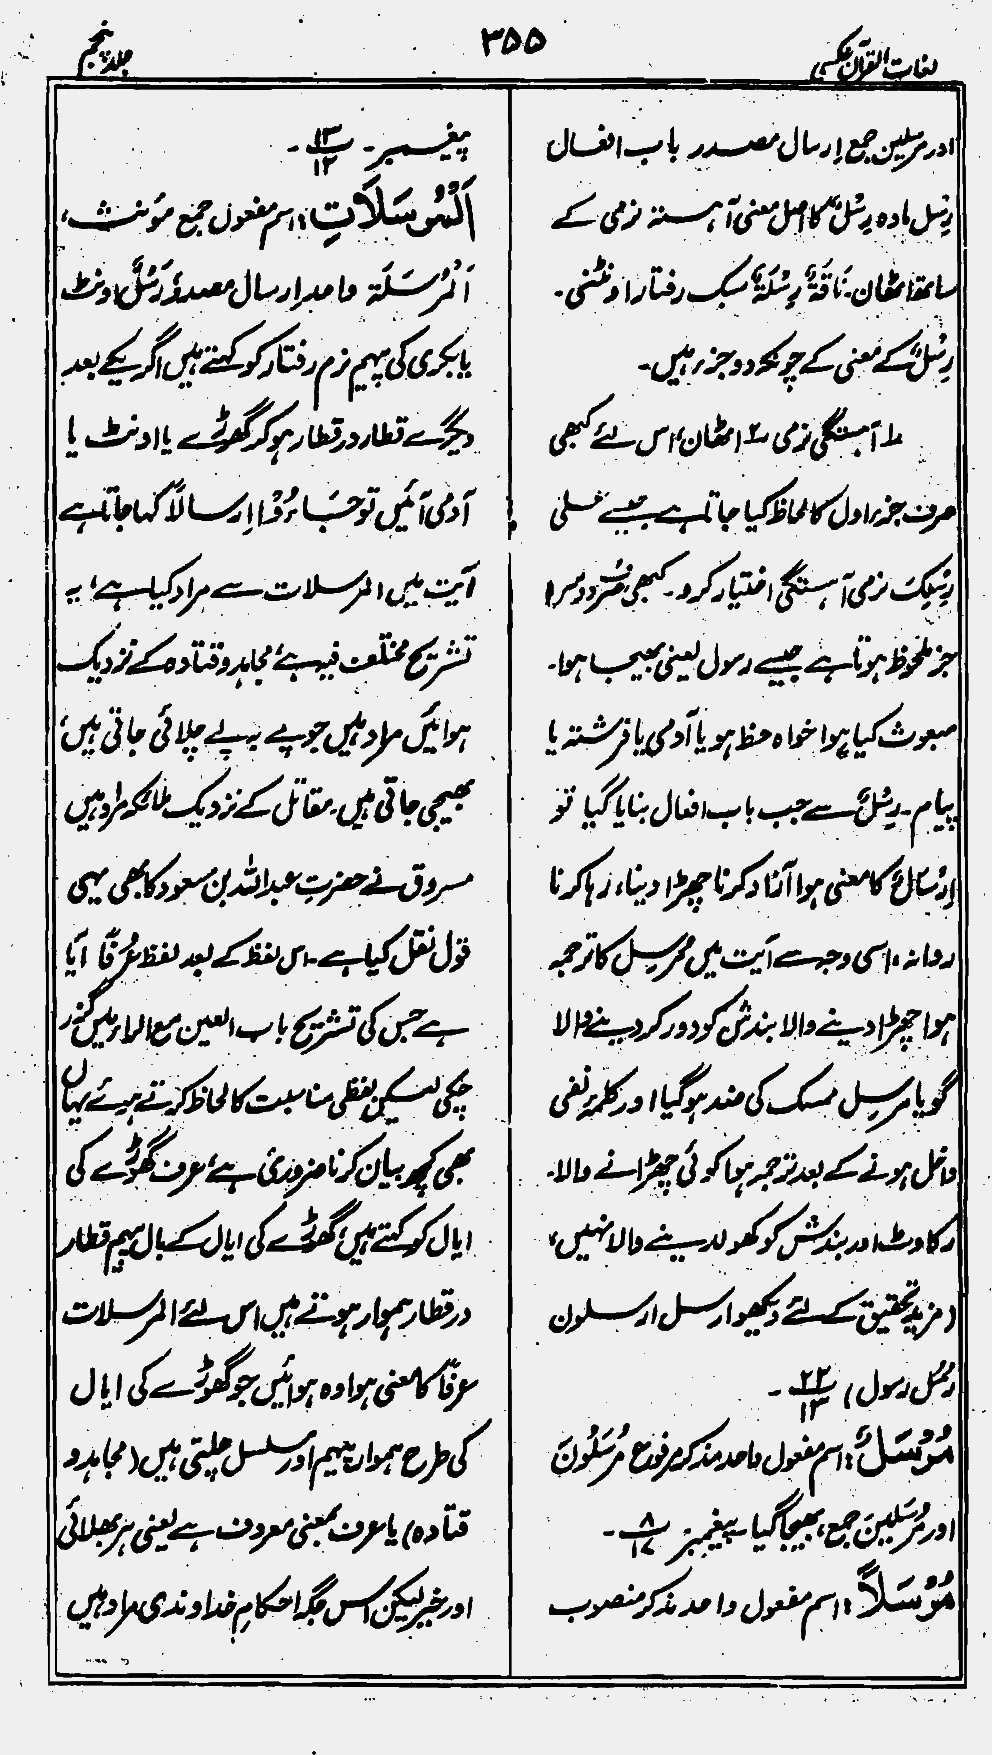 لغات القرآن عکسی
۳۵۵
جلد پنجم
اور مرسلین جمع اِرسال مصدر باب افعال
رِسل مادہ رِسْلٌ کا اصل معنی آہستہ نرمی کے
ساتھ اٹھان۔ نَاقَۃٌ رِسْلَۃٌ سبک رفتار اونٹنی۔
رِسْلٌ کے معنی کے چونکہ دو جزء ہیں۔
۱ آہستگی نرمی ۲ اٹھان، اس لئے کبھی
صرف جزء اول کا لحاظ کیا جاتا ہے جیسے علی
رِسْلِکَ نرمی آہستگی اختیار کرو۔ کبھی صرف دوسرا
جز ملحوظ ہوتا ہے جیسے رسول یعنی بھیجا ہوا۔
مبعوث کیا ہوا خواہ خط ہو یا آدمی یا فرشتہ یا
پیام۔ رِسْلٌ سے جب باب افعال بنایا گیا تو
اِرْسَالٌ کا معنی ہوا آزاد کرنا چھڑا دینا، رہا کرنا
روانہ، اسی وجہ سے آیت میں مُرسِل کا ترجمہ
ہوا چھڑا دینے والا بندش کو دور کر دینے والا
گویا مرسِل ممسک کی ضد ہوگیا اور کلمۂ نفی
داخل ہونے کے بعد ترجمہ ہوا کوئی چھڑانے والا۔
رکاوٹ اور بندش کو کھولدینے والا نہیں،
(مزید تحقیق کے لئے دیکھو ارسل ارسلون
رسُل رسول) ۲۲/۱۳ ۔
مُرْسَلٌ: اسم مفعول واحد مذکر مرفوع مُرسَلُونَ
اور مُرسَلِینَ جمع، بھیجا گیا پیغمبر ۸/۱۷ ۔
مُرْسَلاً: اسم مفعول واحد مذکر منصوب
پیغمبر۔ ۱۳/۱۲ ۔
اَلْمُرْسَلَاتِ: اسم مفعول جمع مؤنث،
اَلْمُرْسَلَۃ واحد ارسال مصدر رَسْلٌ اونٹ
یا بکری کی پیہم نرم رفتار کو کہتے ہیں اگر یکے بعد
دیگرے قطار در قطار ہو کر گھوڑے یا اونٹ یا
آدمی آئیں تو جَاءُوْا اِرسالاً کہا جاتا ہے
آیت میں المرسلات سے مراد کیا ہے، یہ
تشریح مختلف فیہ ہے، مجاہد و قتادہ کے نزدیک
ہوائیں مراد ہیں جو پے بہ پے چلائی جاتی ہیں،
بھیجی جاتی ہیں۔ مقاتل کے نزدیک ملائکہ مراد ہیں
مسروق نے حضرت عبداللہ بن مسعود کا بھی یہی
قول نقل کیا ہے۔ اس لفظ کے بعد لفظ عُرفًا آیا
ہے جس کی تشریح باب العین مع الراء میں گذر
چکی لیکن لفظی مناسبت کا لحاظ کرتے ہوئے یہاں
بھی کچھ بیان کرنا ضروری ہے، عرف گھوڑے کی
ایال کو کہتے ہیں، گھوڑے کی ایال کے بال پیہم قطار
در قطار ہموار ہوتے ہیں اس لئے المرسلات
عرفًا کا معنی ہوا وہ ہوائیں جو گھوڑے کی ایال
کی طرح ہموار پیہم اور مسلسل چلتی ہیں (مجاہد و
قتادہ) یا عرف بمعنی معروف ہے یعنی ہر بھلائی
اور خیر لیکن اس جگہ احکامِ خداوندی مراد ہیں